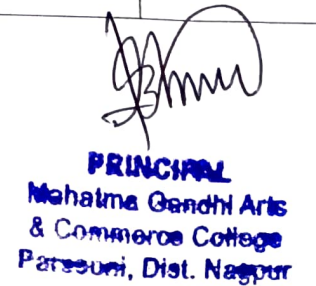 PRINCIPAL
Mahatma Gandhi Arts
& Commerce College
Parseoni, Dist. Nagpur